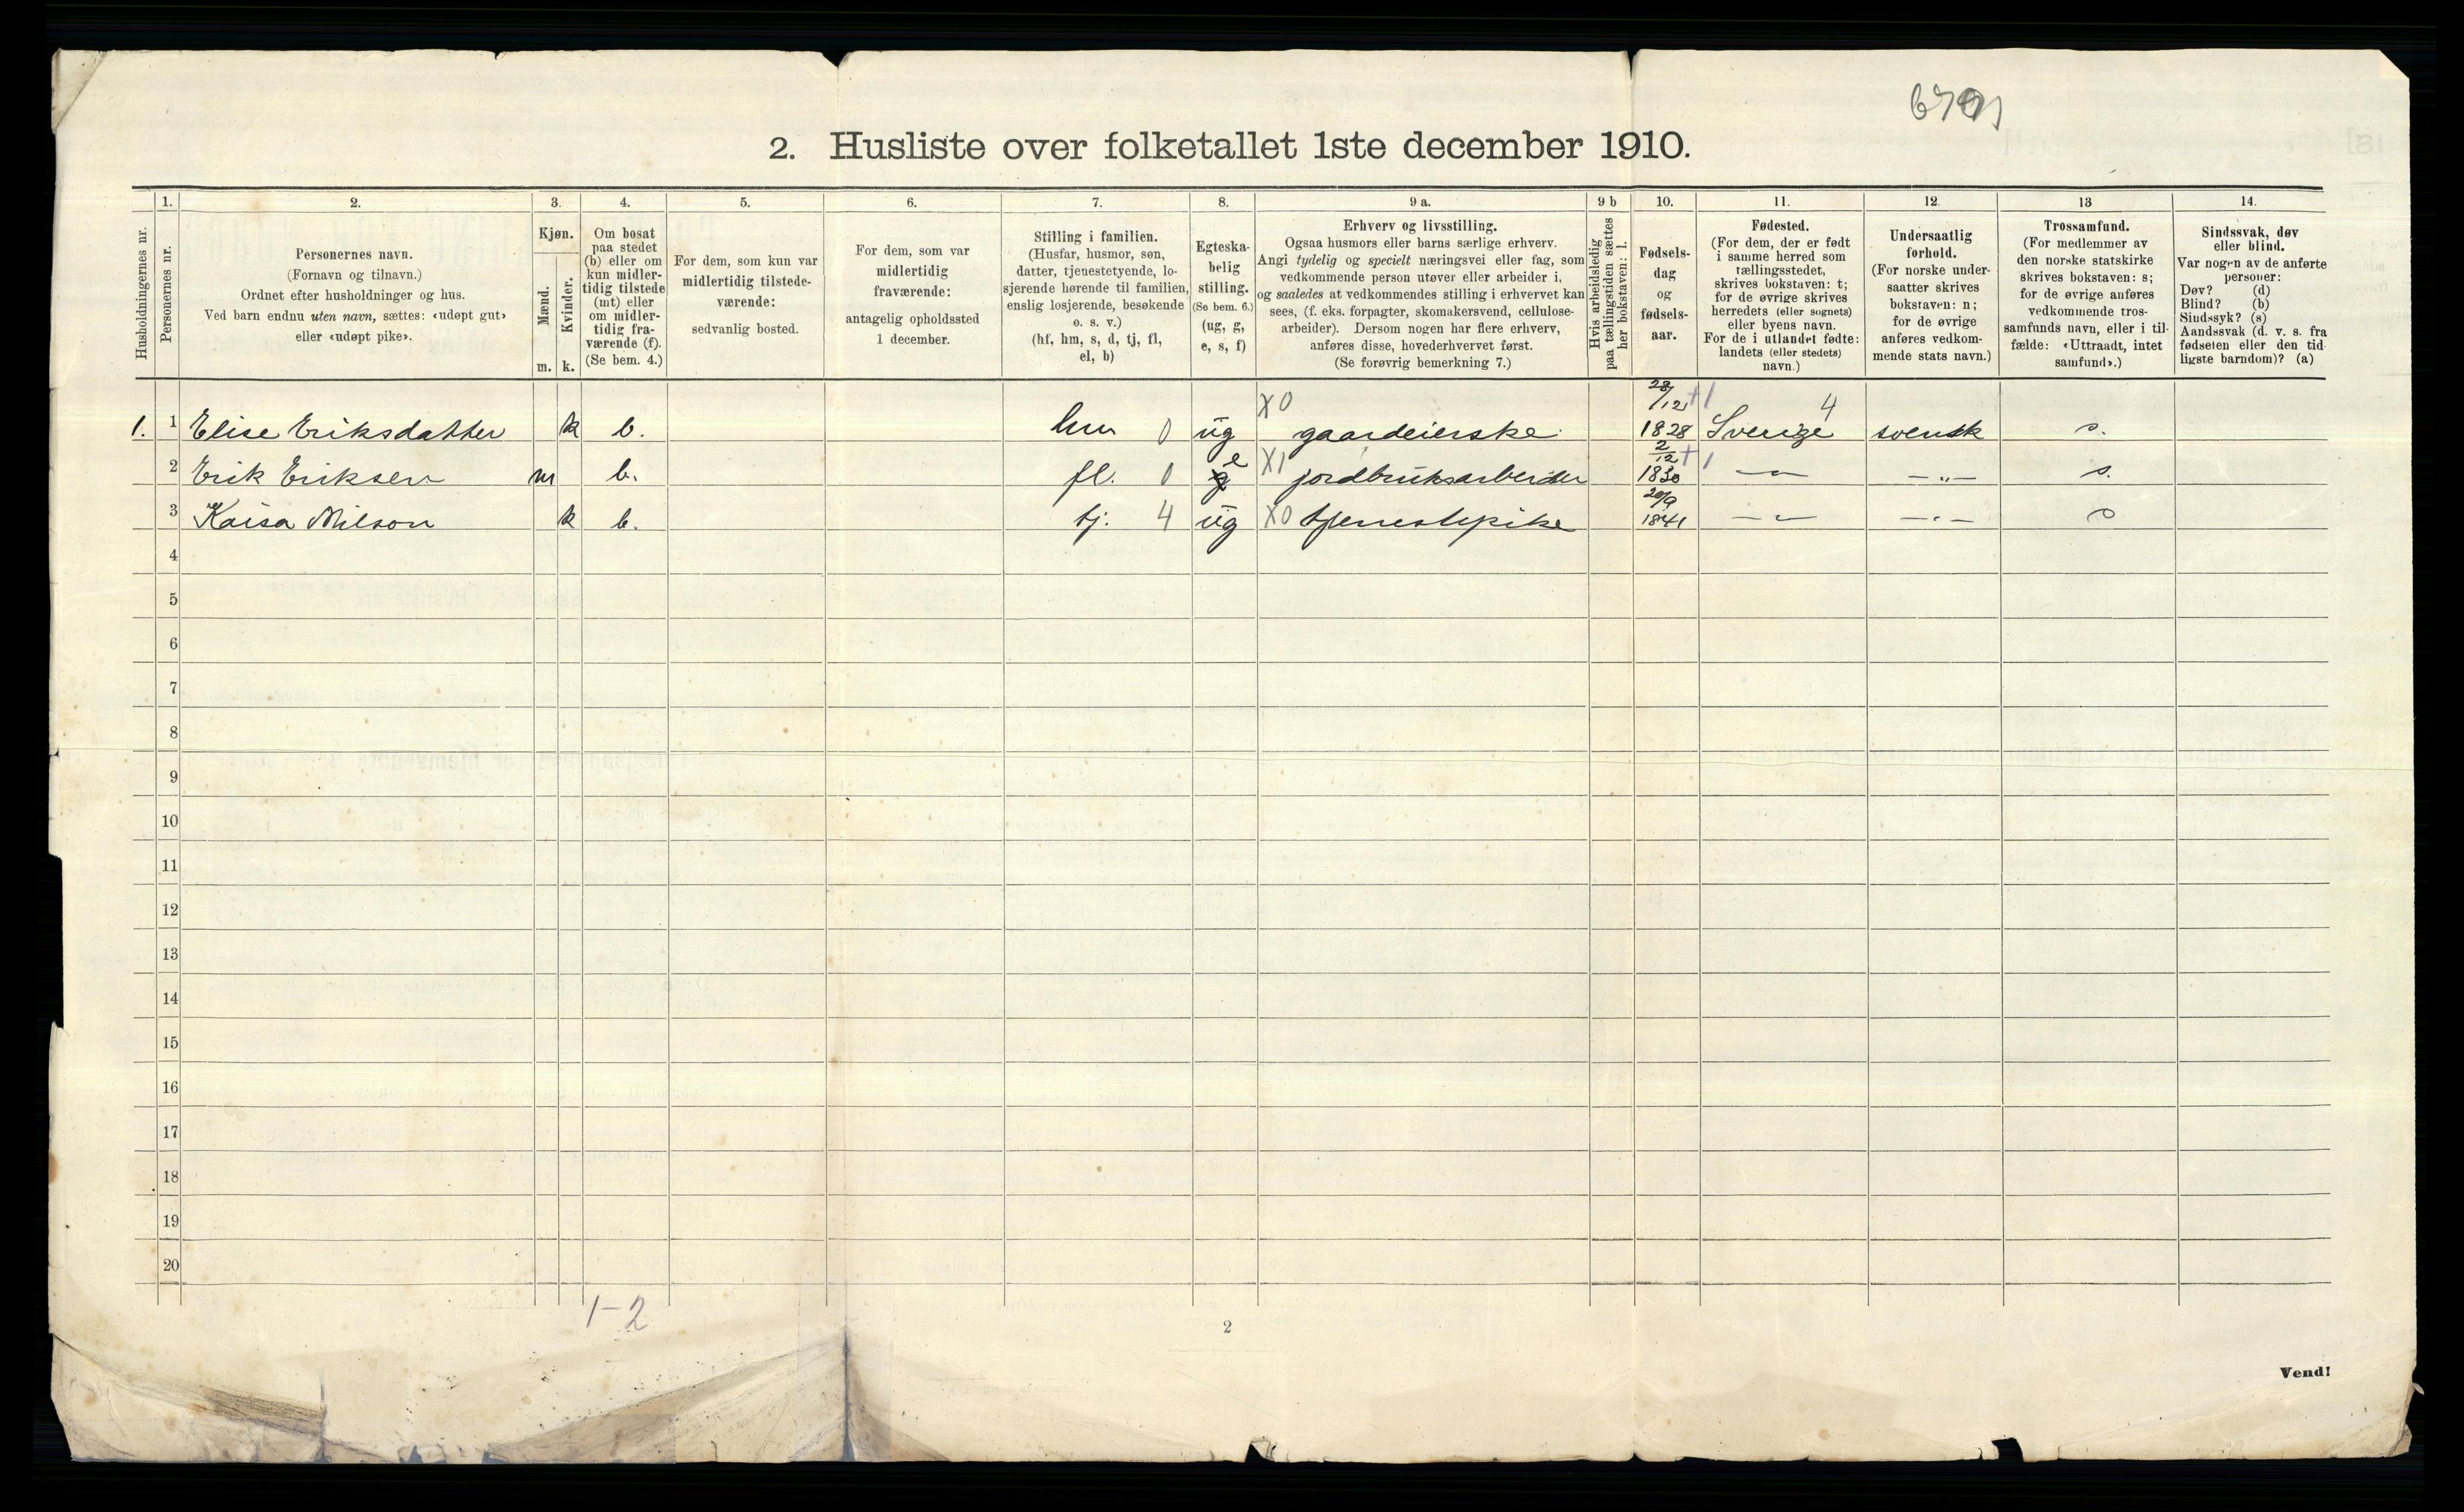 2. Husliste over folketallet 1ste december 1910.
Husholdningernes nr.
1.
Personernes nr.
2.
Personernes navn.
(Fornavn og tilnavn.)
Ordnet efter husholdninger og hus.
Ved barn endnu uten navn, sættes: «udøpt gut»
eller «udøpt pike».
3.
Kjøn.
Mænd.
Kvinder.
m. k.
4.
Om bosat
paa stedet
(b) eller om
kun midler-
tidig tilstede
(mt) eller
om midler-
tidig fra-
værende (f).
(Se bem. 4.)
5.
For dem, som kun var
midlertidig tilstede-
værende:
sedvanlig bosted.
6.
For dem, som var
midlertidig
fraværende:
antagelig opholdssted
1 december.
7.
Stilling i familien.
(Husfar, husmor, søn,
datter, tjenestetyende, lo-
sjerende hørende til familien,
enslig losjerende, besøkende
o. s. v.)
(hf, hm, s, d, tj, fl,
el, b)
8.
Egteska-
belig
stilling.
(Se bem. 6.)
(ug, g,
e, s, f)
9 a.
Erhverv og livsstilling.
Ogsaa husmors eller barns særlige erhverv.
Angi tydelig og specielt næringsvei eller fag, som
vedkommende person utøver eller arbeider i,
og saaledes at vedkommendes stilling i erhvervet kan
sees, (f. eks. forpagter, skomakersvend, cellulose-
arbeider). Dersom nogen har flere erhverv,
anføres disse, hovederhvervet først.
(Se forøvrig bemerkning 7.)
9 b
Hvis arbeidsledig
paa tællingstiden sættes
her bokstaven: l.
10.
Fødsels-
dag
og
fødsels-
aar.
11.
Fødested.
(For dem, der er født
i samme herred som
tællingsstedet,
skrives bokstaven: t;
for de øvrige skrives
herredets (eller sognets)
eller byens navn.
For de i utlandet fødte:
landets (eller stedets)
navn.)
12.
Undersaatlig
forhold.
(For norske under-
saatter skrives
bokstaven: n;
for de øvrige
anføres vedkom-
mende stats navn.)
13
Trossamfund.
(For medlemmer av
den norske statskirke
skrives bokstaven: s;
for de øvrige anføres
vedkommende tros-
samfunds navn, eller i til-
fælde: «Uttraadt, intet
samfund».)
14.
Sindssvak, døv
eller blind.
Var nogen av de anførte
personer:
Døv? (d)
Blind? (b)
Sindssyk? (s)
Aandssvak (d. v. s. fra
fødselen eller den tid-
ligste barndom)? (a)
X0 28/12 +1 4
1. 1 Elise Eriksdatter k b. hm 0 ug gaardeierske 1828 Sverige svensk s.
2 Erik Eriksen m b. fl. 0 g e X1 jordbruksarbeider 2/12 1830 +1 — " — — " — s.
3 Kaisa Nilson k b. tj. 4 ug X0 tjenestepike 20/9 1841 — " — — " — s
4
5
6
7
8
9
10
11
12
13
14
15
16
17
18
19
20
1-2
2
Vend!